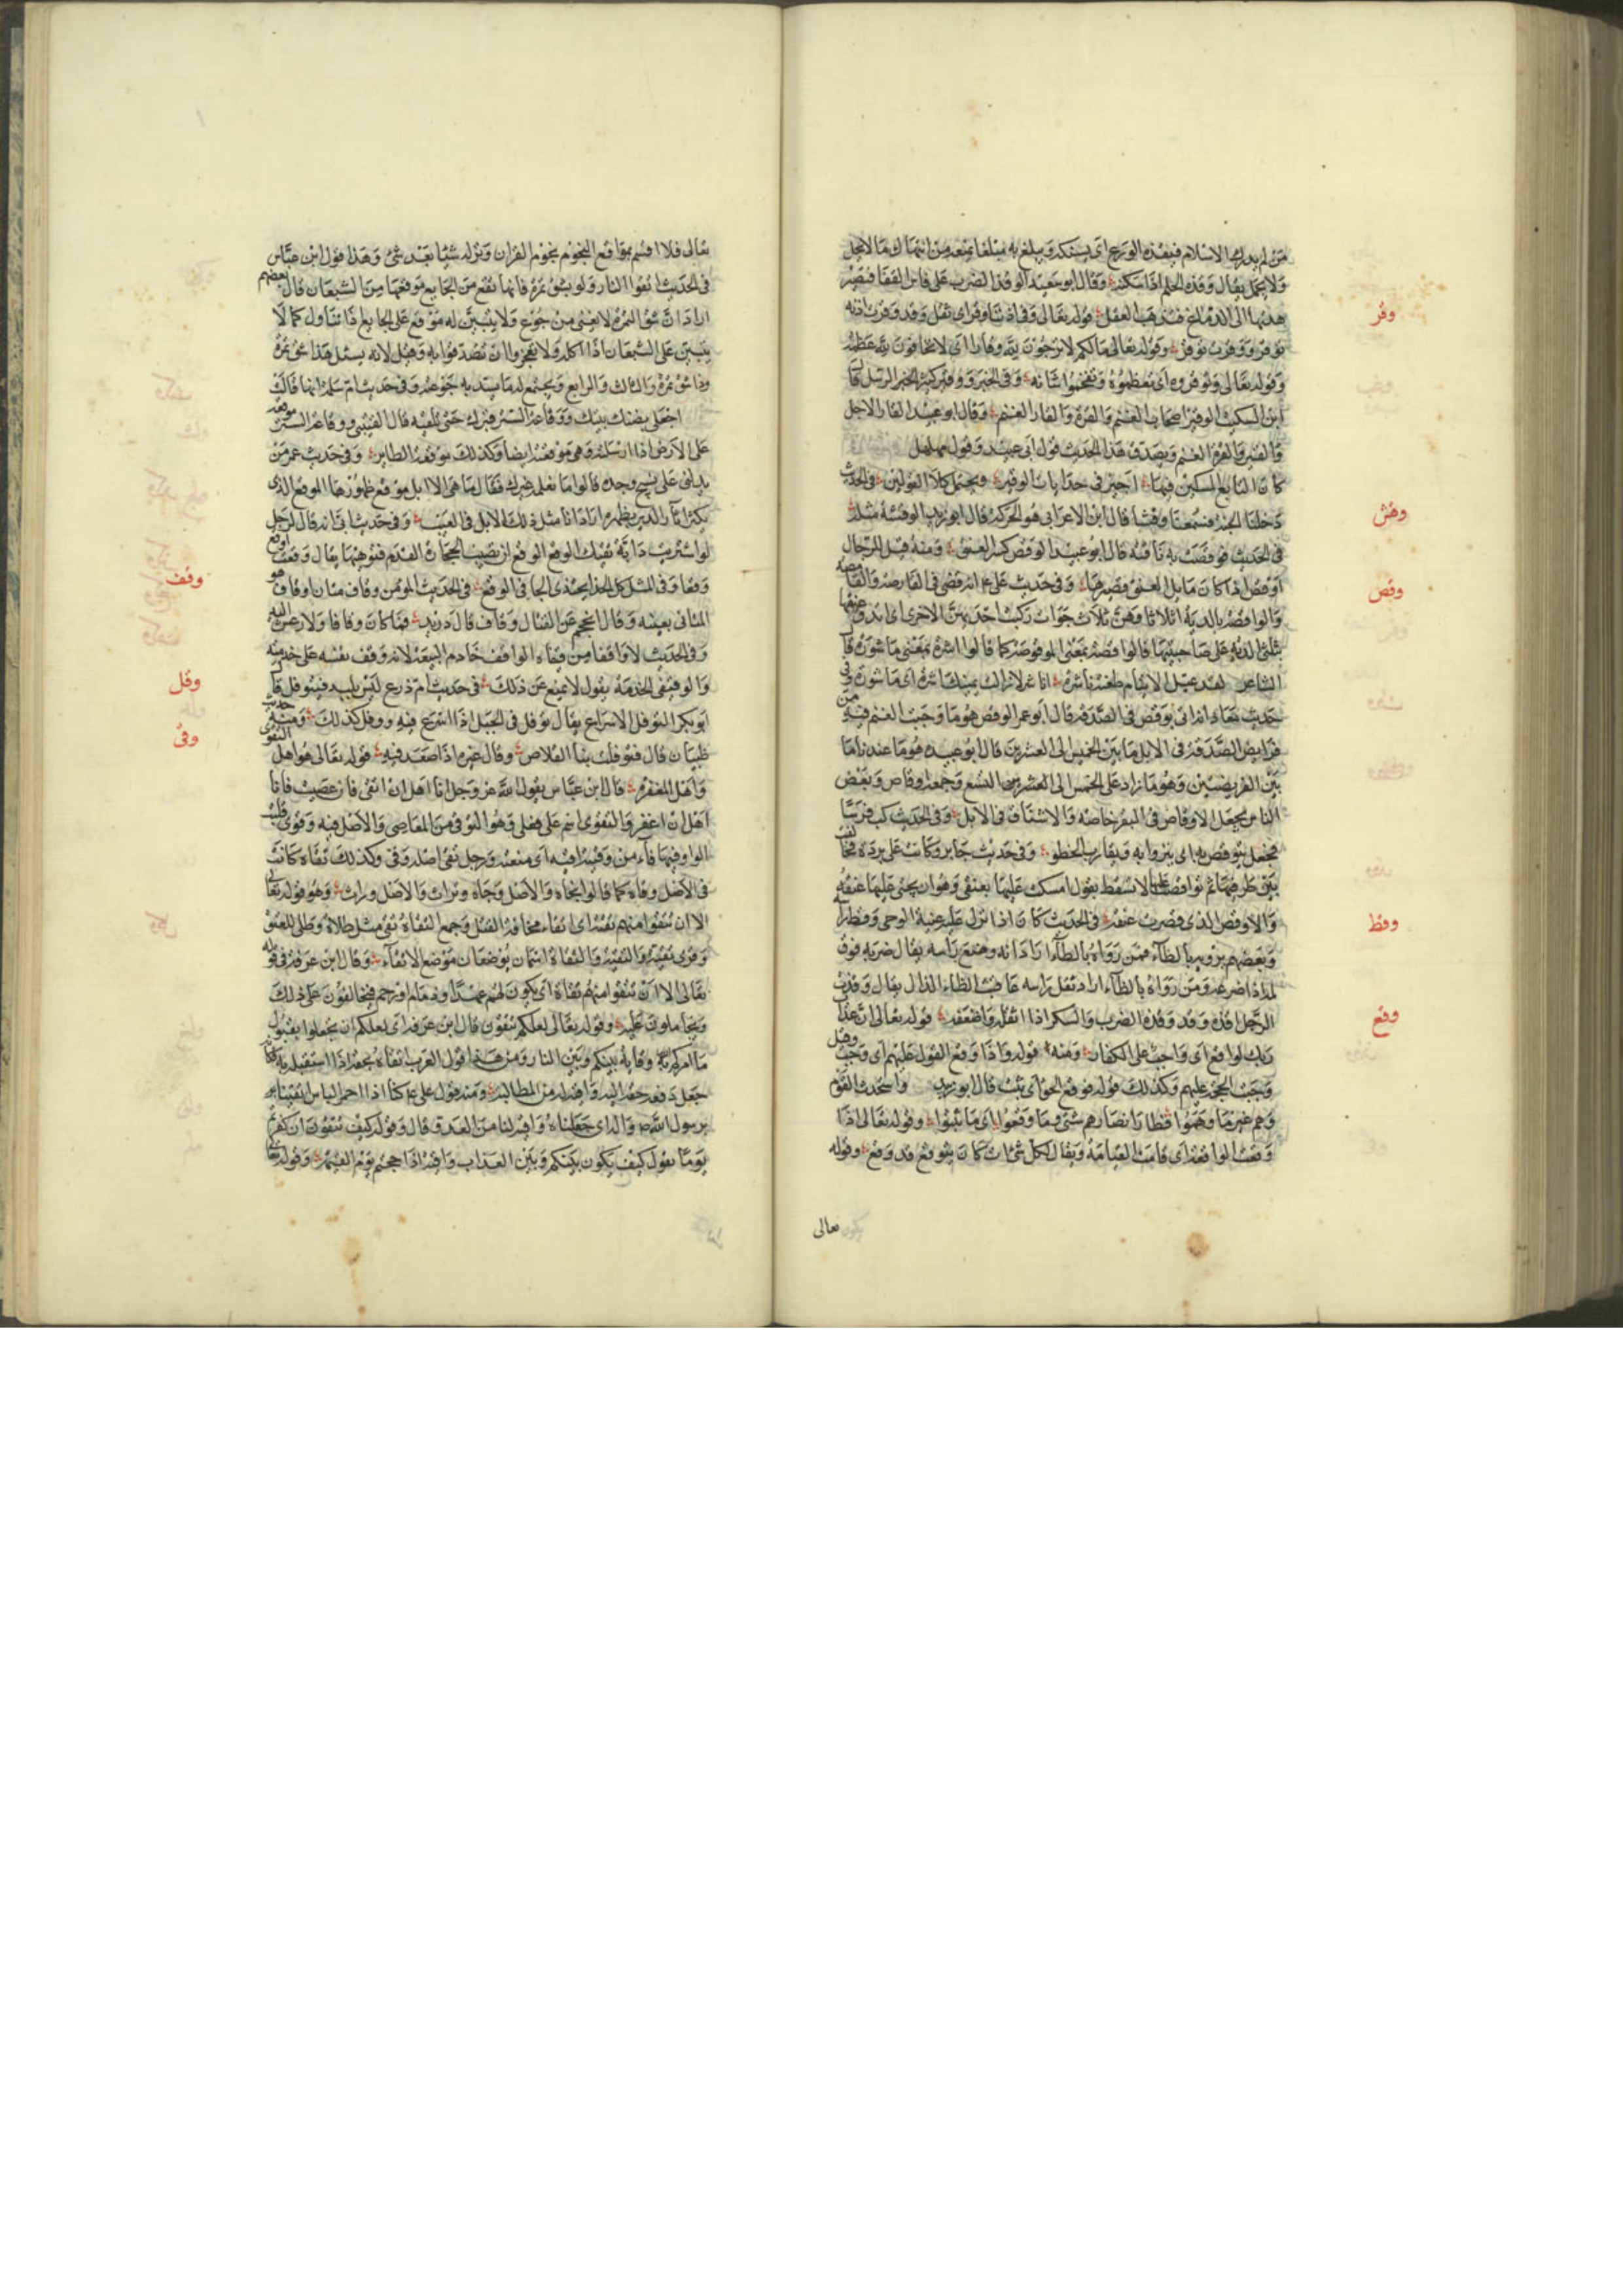 من لم يدرك الاسلام فيقذه الورع اى يسكنه ويبلغ به مبلغا يمنعه من انتهاك ما لا يحل
ولا يجمل يقال وقذه الحلم اذا سكنه وقال ابو سعيد الوقذ الضرب على فاس القفا فتصير
هدتها الى الدماغ فيذهب العقل قوله تعالى وفى اذاننا وقر اى ثقل وقد وقرت اذنه
توقر ووقرت توقر وقوله تعالى مالكم لا ترجون لله وقارا اى لا تخافون لله عظمة
وقوله تعالى وتوقروه اى تعظموه وتفخموا شانه وفى الخبر ووقير كثير الرسل قال
ابن السكيت الوقير اصحاب الغنم والقرة والقار الغنم وقال ابو عبيد القار الابل
والقير والقرة الغنم ويصدق هذا الحديث قول ابى عبيد وقول مهلهل
كان التابع المسكين فيها اجير فى حدايات الوقير ويحتمل كلا القولين فى الحديث
دخلت الجنة فسمعت وقشا قال ابن الاعرابى هو الحركة قال ابو زيد الوقشة مثله
فى الحديث فوقصت به ناقته قال ابو عبيد الوقص كسر العنق ومنه قيل للرجال
اوقص اذا كان مايل العنق قصيرها وفى حديث على انه قضى فى القارصة والقامصة
والواقصة بالدية اثلاثا وهن ثلاث جوار ركبت احديهن الاخرى
بثلثى الدية على صاحبتيها قالوا قصة بمعنى الموقوصة كما قالوا اشرة بمعنى ماشورة قال
الشاعر لقد عيل الايتام طعنة ناشره اناشر لا زالت يمينك اشره اى ماشورة وفى
حديث معاذ انه اتى بوقص فى الصدقة قال ابو عمر الوقص هو ما وجبت الغنم فيه من
فرايض الصدقة فى الابل ما بين الخمس الى العشرين قال ابو عبيد هو ما عندنا ما
بين الفريضتين وهو ما زاد على الخمس الى التسع وجمعه اوقاص وبعض
الناس يجعل الاوقاص فى البقر خاصة والاشناق فى الابل وفى الحديث ركب فرسا
فجعل يتوقص به اى ينزوا به ويقارب الخطو وفى حديث جابر وكانت على بردة فخالفت
بين طرفيها ثم تواقصت عليها لا تسقط يقول امسكت عليها بعنقى وهو ان يحنى عليها عنقه
والاوقص الذى قصرت عنقه فى الحديث كان اذا انزل عليه الوحى وقط راسه
وبعضهم يرويه بالظاء فمن رواه بالطاء اراد انه وضع راسه يقال ضربه فوقطه
اذا صرعه ومن رواه بالظاء اراد ثقل راسه عاقبت الظاء الذال يقال وقذت
الرجل اقذه وقد وقذه الضرب والسكر اذا اثقله واضعفه قوله تعالى ان عذاب
ربك لواقع اى واجب على الكفار ومنه قوله واذا وقع القول عليهم اى وجب وقيل
وجبت الحجة عليهم وكذلك قوله فوقع الحق اى ثبت قال ابو زيد
اذا
وقعت الواقعة اى قامت القيامة ويقال لكل شى ات كان يتوقع قد وقع وقوله
تعالى
وقر
وقش
وقص
وقط
وقع
تعالى فلا اقسم بمواقع النجوم نجوم القران ونزوله شيئا بعد شئ وهذا قول ابن عباس
فى الحديث اتقوا النار ولو بشق تمرة فانها تقع من الجايع موقعها من الشبعان قال بعضهم
اراد ان شق التمرة لا يغنى من جوع ولا يتبين له موقع على الجايع اذا تناوله كما لا
يتبين على الشبعان اذا اكله فلا تعجزوا ان تصدقوا به وقيل لانه يسئل هذا شق تمرة
وذا شق تمرة والثالث والرابع ويجتمع له ما يسد به جوعه وفى حديث ام سلمة انها قالت
اجعلى بيتك ووقاعة الستر قبرك حتى تلقيه قال القتيبى وقاعة الستر موقعه
على الارض اذا ارسلته وهى موقعته ايضا وكذلك موقعة الطاير وفى حديث عمر من
يدلنى على نسيج وحده قالوا ما نعلمه غيرك فقال ما هى الا ابل موقع ظهورها الموقع الذى
يكثر اثار الدبر بظهره اراد انا مثل ذلك الابل فى العيب وفى حديث ابى انه قال لرجل
لو اشتريت دابة تقيك الوقع الوقع ان تصيب الحجارة القدم فتوهنها يقال وقعت
وقعا وفى المثل كل الحذا يحتذى الحافى الوقع فى الحديث المؤمن وقاف متان اوقاف هو
المتانى بعينه وقال المحجم عن القتال وقاف قال دريد فما كان وقافا ولا رعش اليد
وفى الحديث لا واقفا من وقفاه الواقف خادم البيعة لانه وقف نفسه على خدمتها
والوقيفى الخدمة يقول لا يمنع عن ذلك فى حديث ام زرع ليس بلبد فيتوقل قال
ابو بكر التوقل الاسراع يقال توقل فى الجبل اذا اسرع فيه ووقل كذلك ومنه حديث
ظبيان قال فتوقلت بنا القلاص وقال غيره اذا صعد فيه قوله تعالى هو اهل التقوى
واهل المغفرة قال ابن عباس يقول الله عز وجل انا اهل ان اتقى فان عصيت فانا
اهل ان اغفر والتقوى اسم على فعلى وهو التوقى من المعاصى والاصل فيه وقوى قلبت
الواو فيها تاء من وقيته اقيه اى منعته ورجل تقى اصله وقى وكذلك تقاة كانت
فى الاصل وقاه كما قالوا تجاه والاصل وجاه وتراث والاصل وراث وهو قوله تعالى
الا ان تتقوا منهم تقية اى اتقاء مخافة القتل وجمع التقاة تقى مثل طلاة وطلى للعنق
وقرى تقية والتقية والتقاة اسمان يوضعان موضع الاتقاء وقال ابن عرفة فى قوله
تعالى الا ان تتقوا منهم تقاة اى يكون لهم عهد او ذمام او رحم فيخالقون على ذلك
ويجاملون عليه وقوله تعالى لعلكم تتقون قال ابن عرفة اى لعلكم ان تجعلوا بقبول
ما امركم به وقاية بينكم وبين النار ومن هذا قول العرب اتقاه بحقه اذا استقبله به كانه
جعل دفعه حقه اليه واقية له من المطالبة ومنه قول على كنا اذا احمر الباس اتقينا
برسول الله والداى جعلناه واقية لنا من العدو قال وقوله كيف تتقون ان كفرتم
يوما يقول كيف يكون بينكم وبين العذاب واقية اذا جحدتم يوم القيمة وقوله تعالى
وقف
وقل
وقى